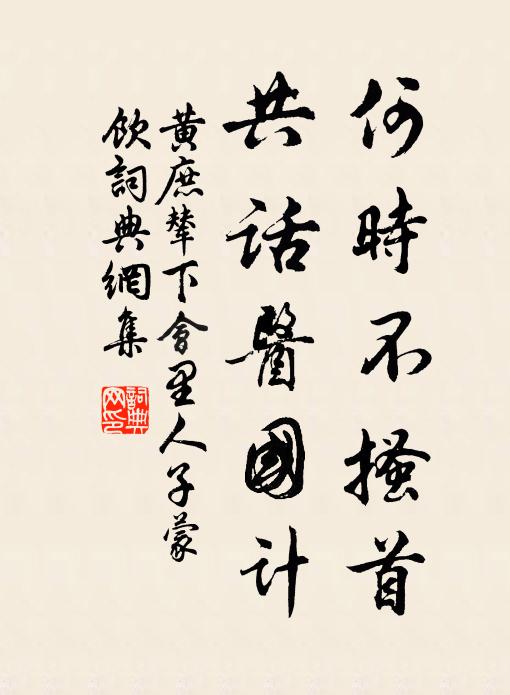 何時不搔首
共话醫國计
黃庶輦下會里人子蒙
飲詞典網集
詞典
网印